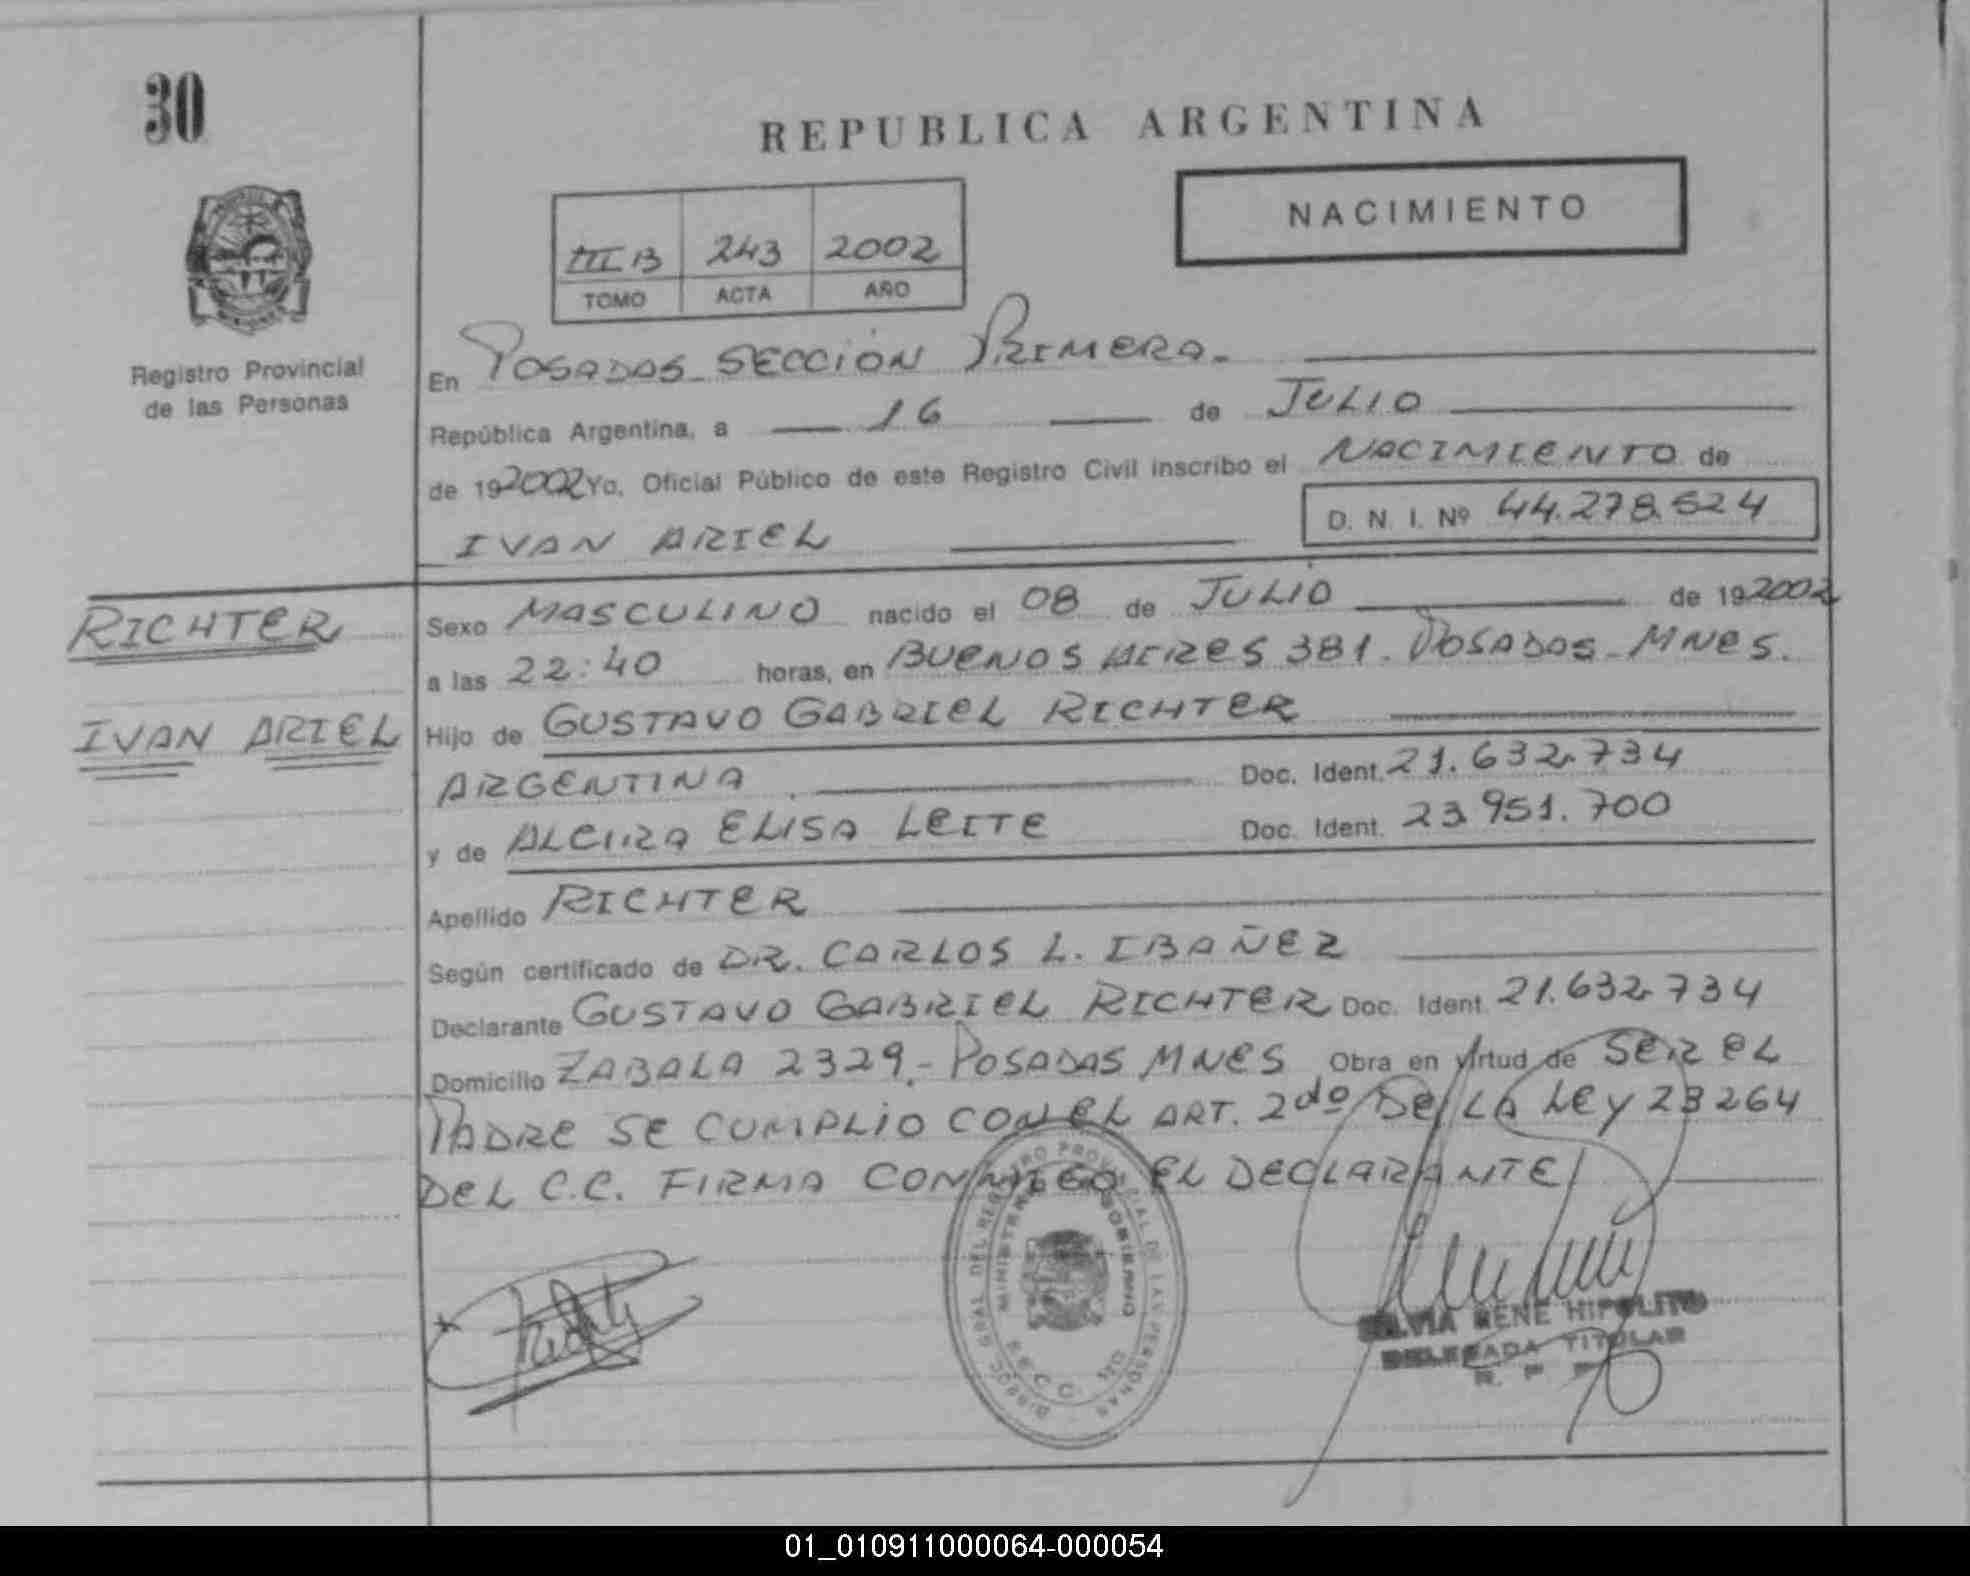 30
REPUBLICA ARGENTINA
NACIMIENTO
III B 243 2002
TOMO ACTA AÑO
Registro Provincial
de las Personas
En POSADAS SECCIÓN PRIMERA.
República Argentina, a 16 de JULIO
de 192002 Yo, Oficial Público de este Registro Civil inscribo el NACIMIENTO de
IVAN ARIEL D. N. I. Nº 44.278.524
RICHTER
IVAN ARIEL
Sexo MASCULINO nacido el 08 de JULIO de 192002
a las 22:40 horas, en BUENOS AIRES 381. POSADAS - MNES.
Hijo de GUSTAVO GABRIEL RICHTER
ARGENTINA Doc. Ident. 21.632.734
y de ALCIRA ELISA LEITE Doc. Ident. 23.951.700
Apellido RICHTER
Según certificado de DR. CARLOS L. IBAÑEZ
Declarante GUSTAVO GABRIEL RICHTER Doc. Ident. 21.632.734
Domicilio ZABALA 2329.- POSADAS MNES Obra en virtud de SER EL
PADRE SE CUMPLIO CON EL ART. 2do DE LA LEY 23264
DEL C.C. FIRMA CONMIGO EL DECLARANTE
DEL REGISTRO PROVINCIAL DE LAS PERSONAS
SILVIA RENE HIPOLITO
DELEGADA TITULAR
01_010911000064-000054